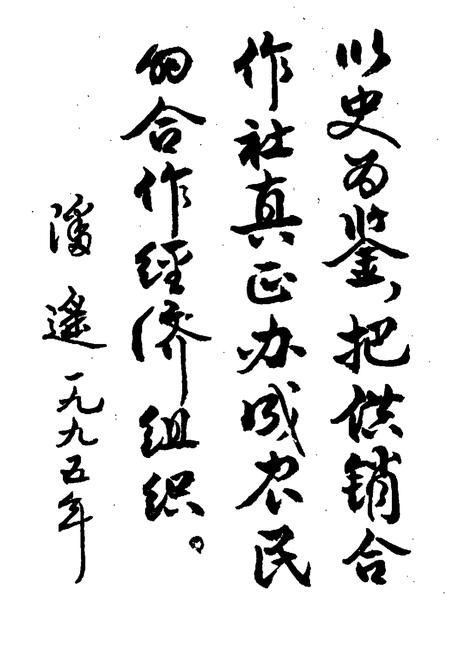 以史为鉴,把供销合
作社真正办成农民
的合作经济组织。
潘遥一九九五年